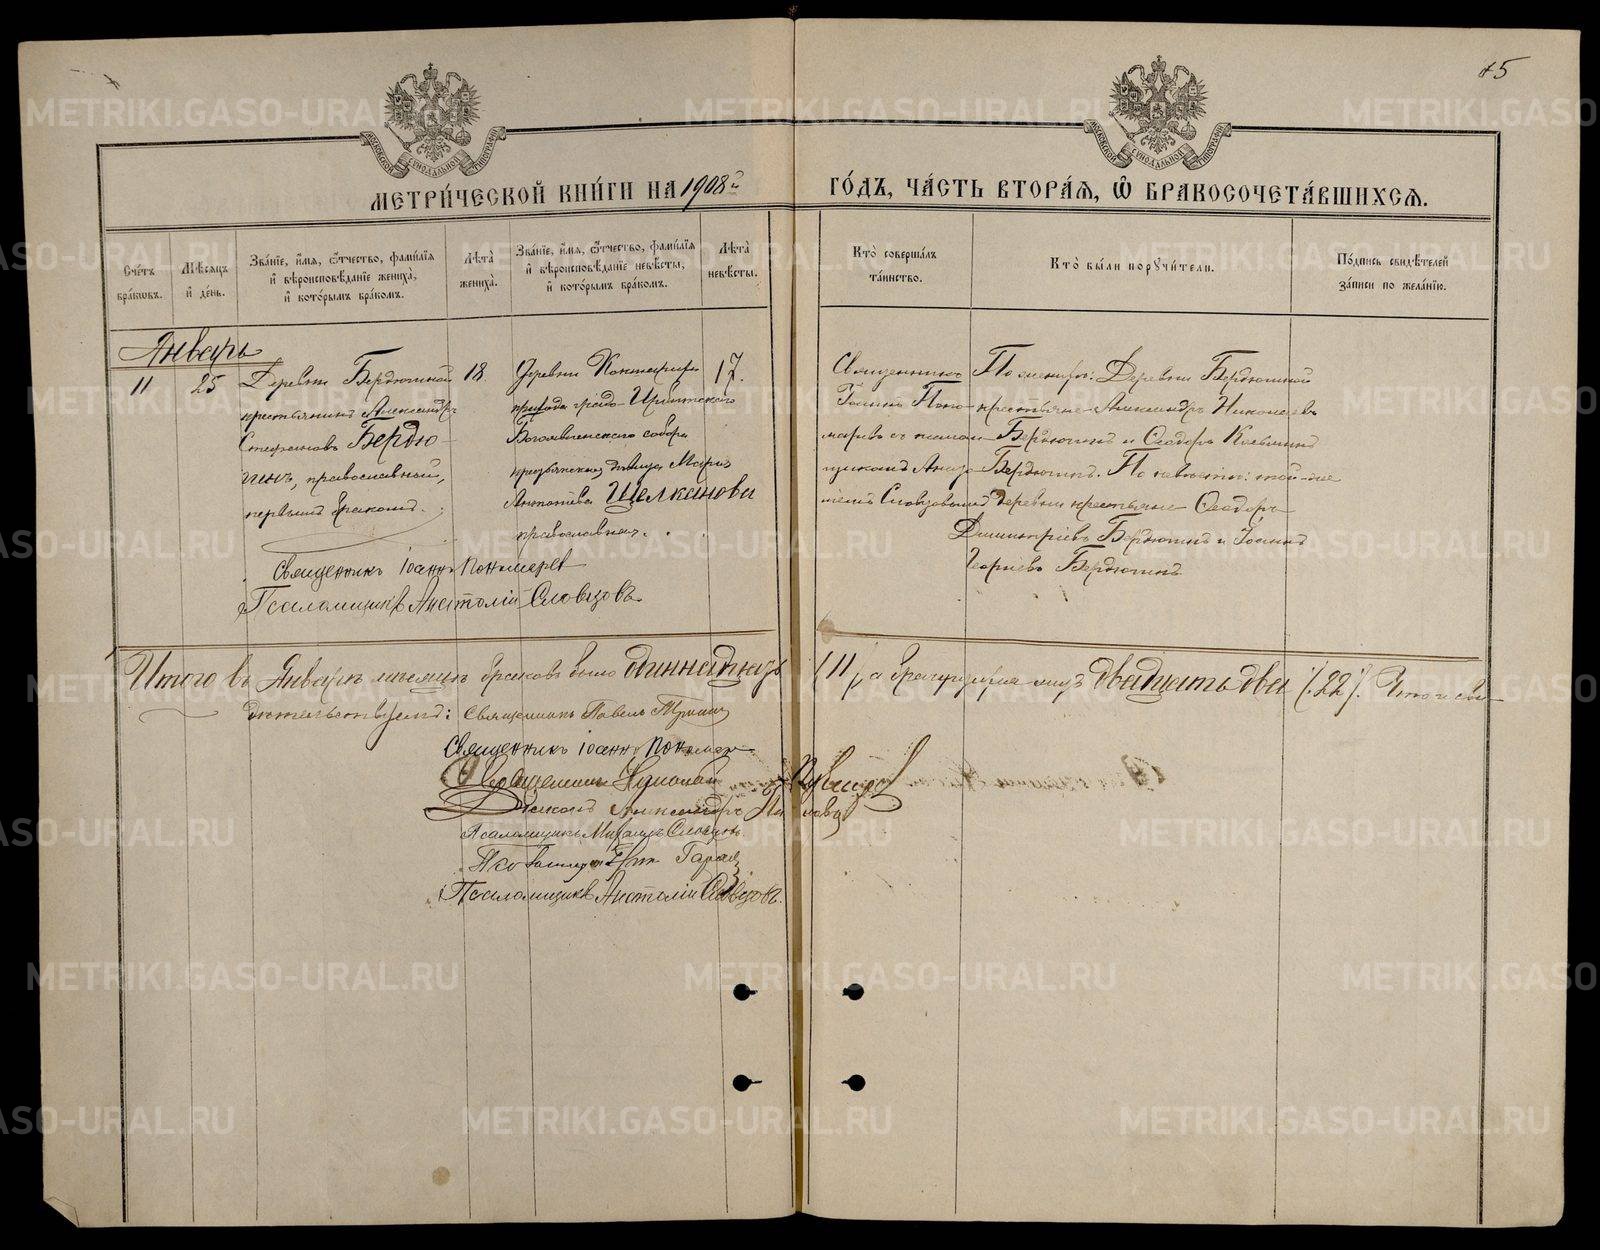 45
МОСКОВСКОЙ СѴНОДАЛЬНОЙ ТИПОГРАФІИ
МОСКОВСКОЙ СѴНОДАЛЬНОЙ ТИПОГРАФІИ
МЕТРИ́ЧЕСКОЙ КНИ́ГИ НА 1908й ГО́ДЪ, ЧА́СТЬ ВТОРА́Я, Ѿ БРАКОСОЧЕТА́ВШИХСЯ.
Сче́тъ
бра́ковъ.
Мѣ́сяцъ
и҆ де́нь.
Зва́нїе, и҆́мя, ѻ҆́тчество, фами́лїя
и҆ вѣроисповѣ́данїе жениха̀,
и҆ кото́рымъ бра́комъ.
Лѣ́та
жениха̀.
Зва́нїе, и҆́мя, ѻ҆́тчество, фами́лїя
и҆ вѣроисповѣ́данїе невѣ́сты,
и҆ кото́рымъ бра́комъ.
Лѣ́та
невѣ́сты.
Кто̀ соверша́лъ
та́инство.
Кто̀ бы́ли порꙋчи́тели.
По́дпись свидѣ́телей
за́писи по жела́нїю.
Январь
11
25
Деревни Бердюгиной
крестьянинъ Александръ
Стефановъ Бердю-
гинъ, православный,
первымъ бракомъ.
18
Деревни
прихода градо-Ирбитского
Богоявленского собора
крестьянская дѣвица Марія
Щелканова
православная.
17.
Священникъ
Іоаннъ Поно-
маревъ съ псалом-
щикомъ Анато-
ліемъ Словцовымъ
По женихѣ: Деревни Бердюгиной
крестьяне Александръ Николаевъ
Бердюгинъ и Ѳеодоръ Козьминъ
Бердюгинъ. По невѣстѣ: той-же
деревни крестьяне Ѳеодоръ
Димитріевъ Бердюгинъ и Іоаннъ
Георгіевъ Бердюгинъ
Священникъ Іоаннъ Пономаревъ
Псаломщикъ Анатолій Словцовъ.
Итого въ Январѣ мѣсяцѣ браковъ было одиннадцать (11), а бракующихся лицъ двадцать два (22). Что и сви-
дѣтельствуемъ: Священникъ Павелъ
Священникъ Іоаннъ Пономаревъ
Священникъ Николай
Діаконъ Александръ
Псаломщикъ Михаилъ Словцовъ.
Псаломщикъ Анатолій Словцовъ.
METRIKI.GASO-URAL.RU